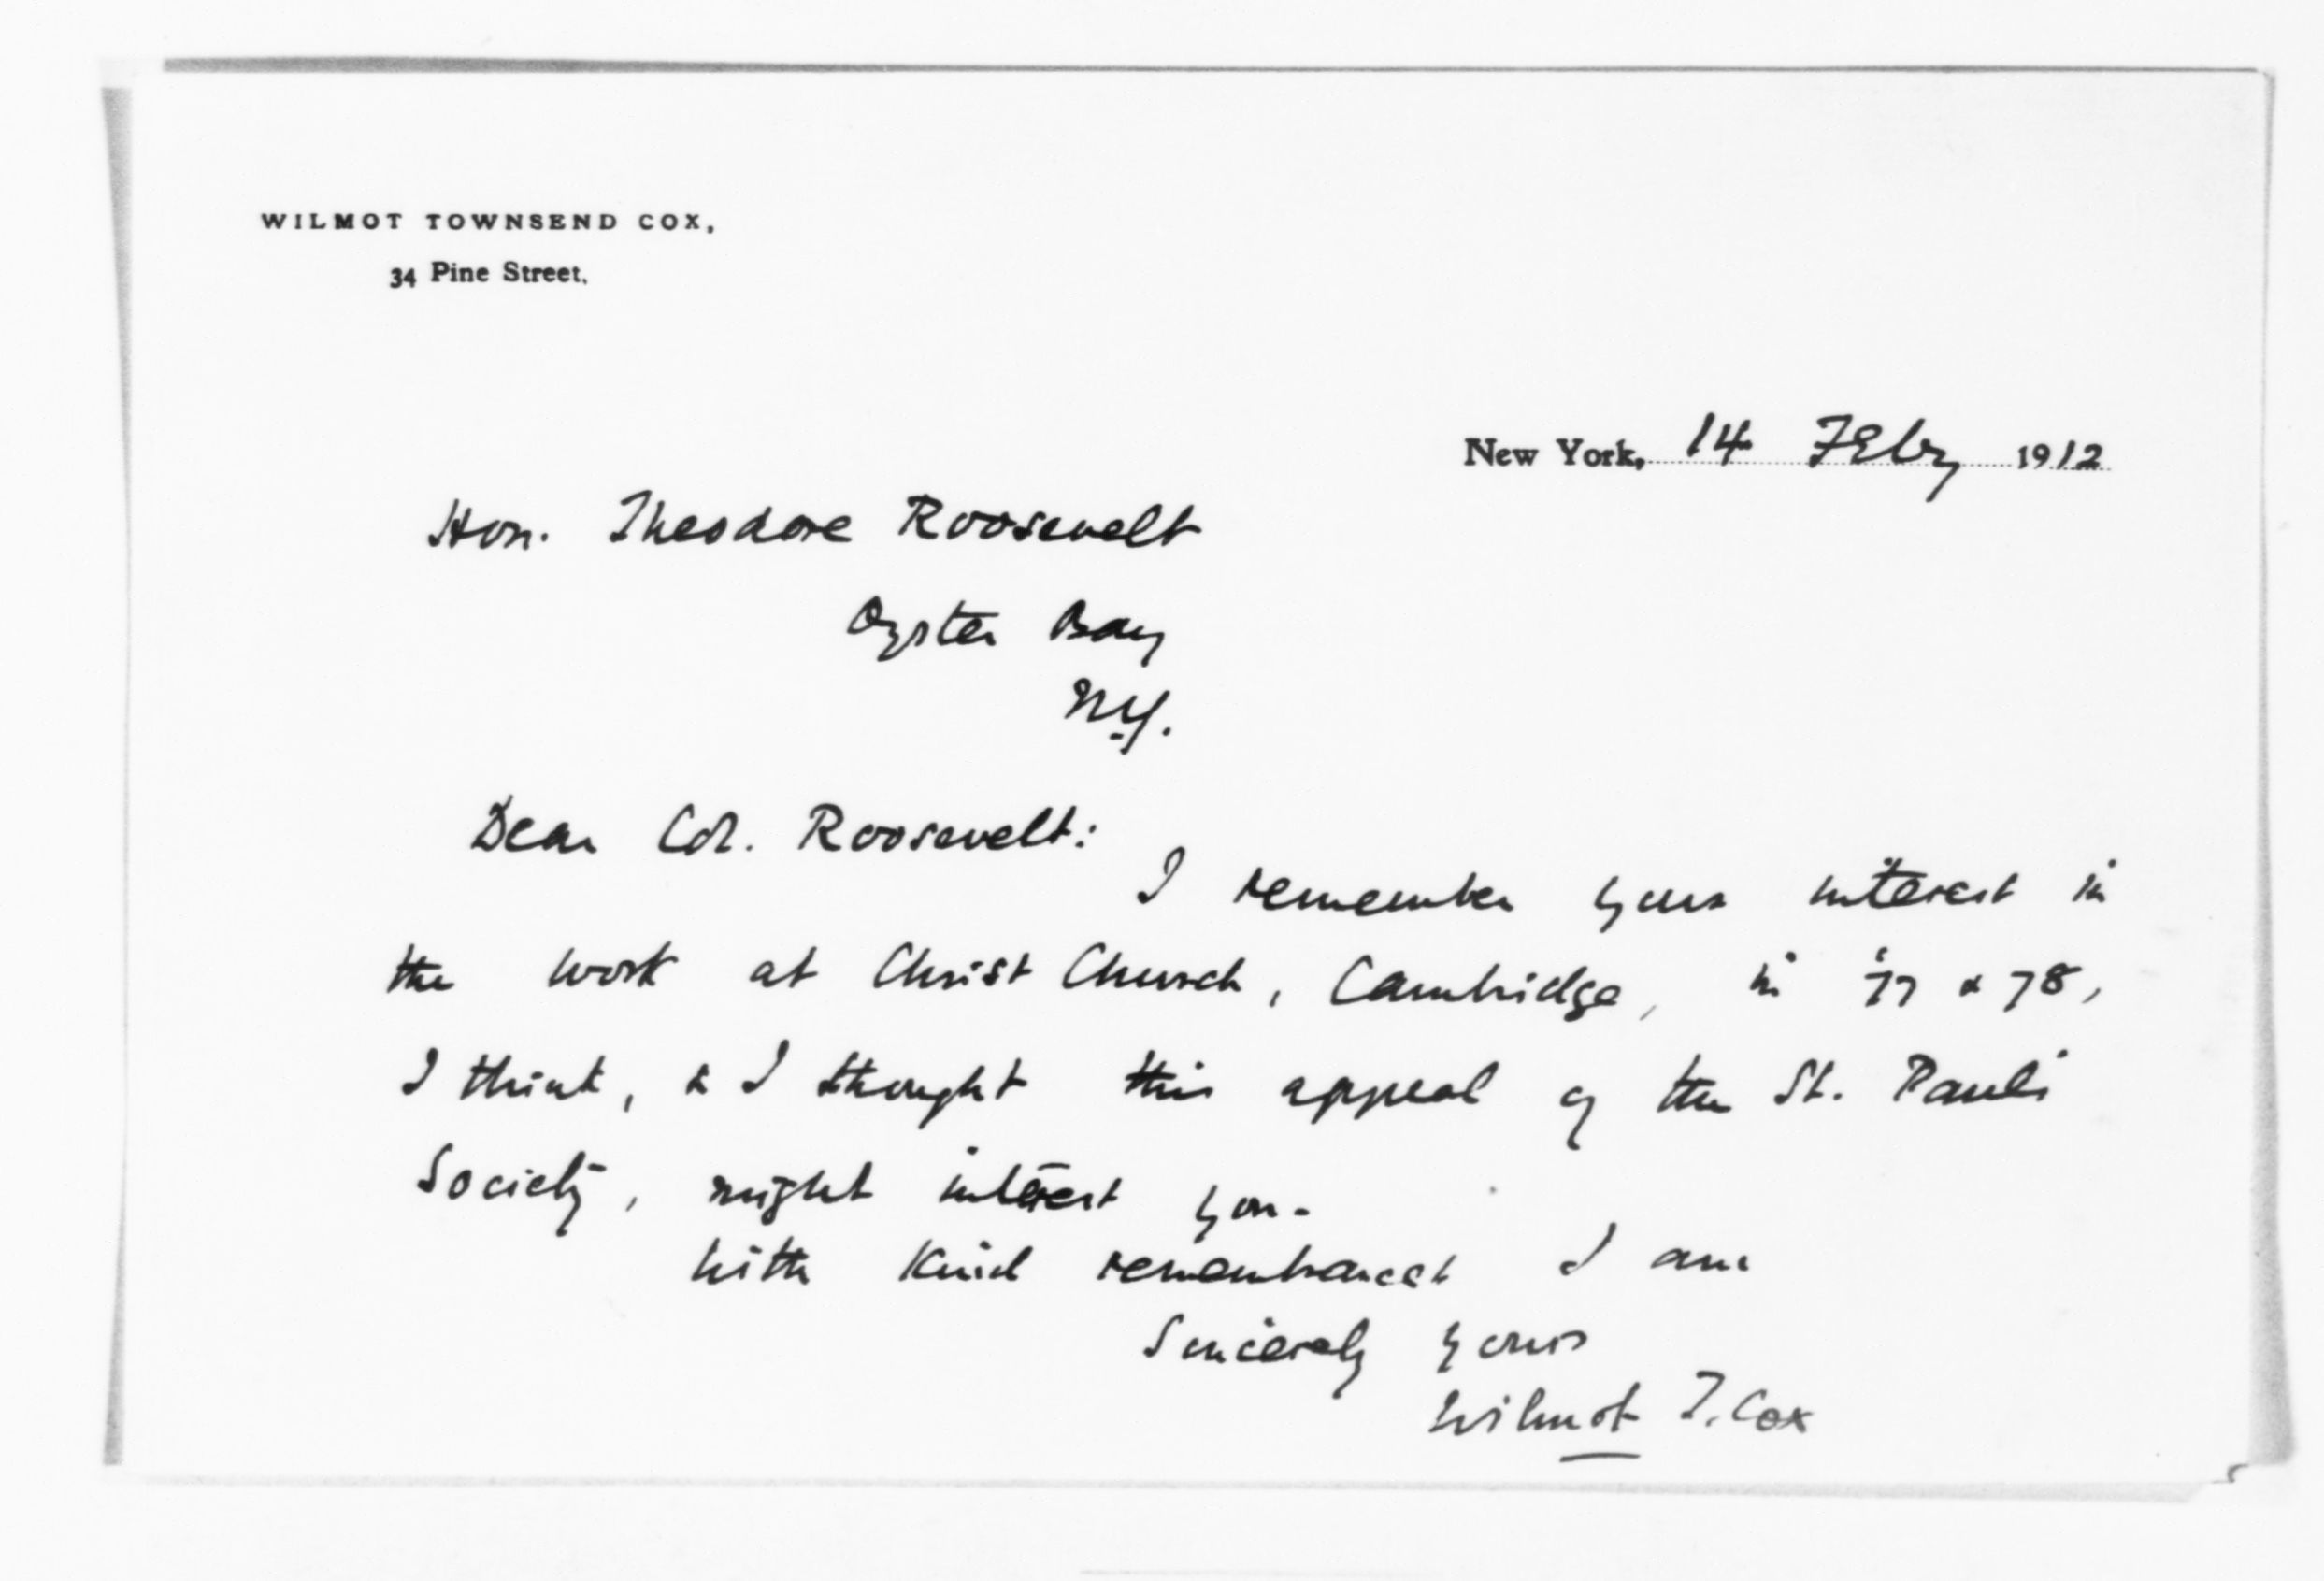 WILMOT TOWNSEND COX,
34 Pine Street,
New York, 14 Feby 1912
Hon. Theodore Roosevelt
Oyster Bay
N.Y.
Dear Col. Roosevelt:
I remember your interest in
the work at Christ Church, Cambridge, in '77 & 78,
I think, & I thought this appeal of the St. Paul's
Society, might interest you.
With kind remembrances I am
Sincerely yours
Wilmot T. Cox